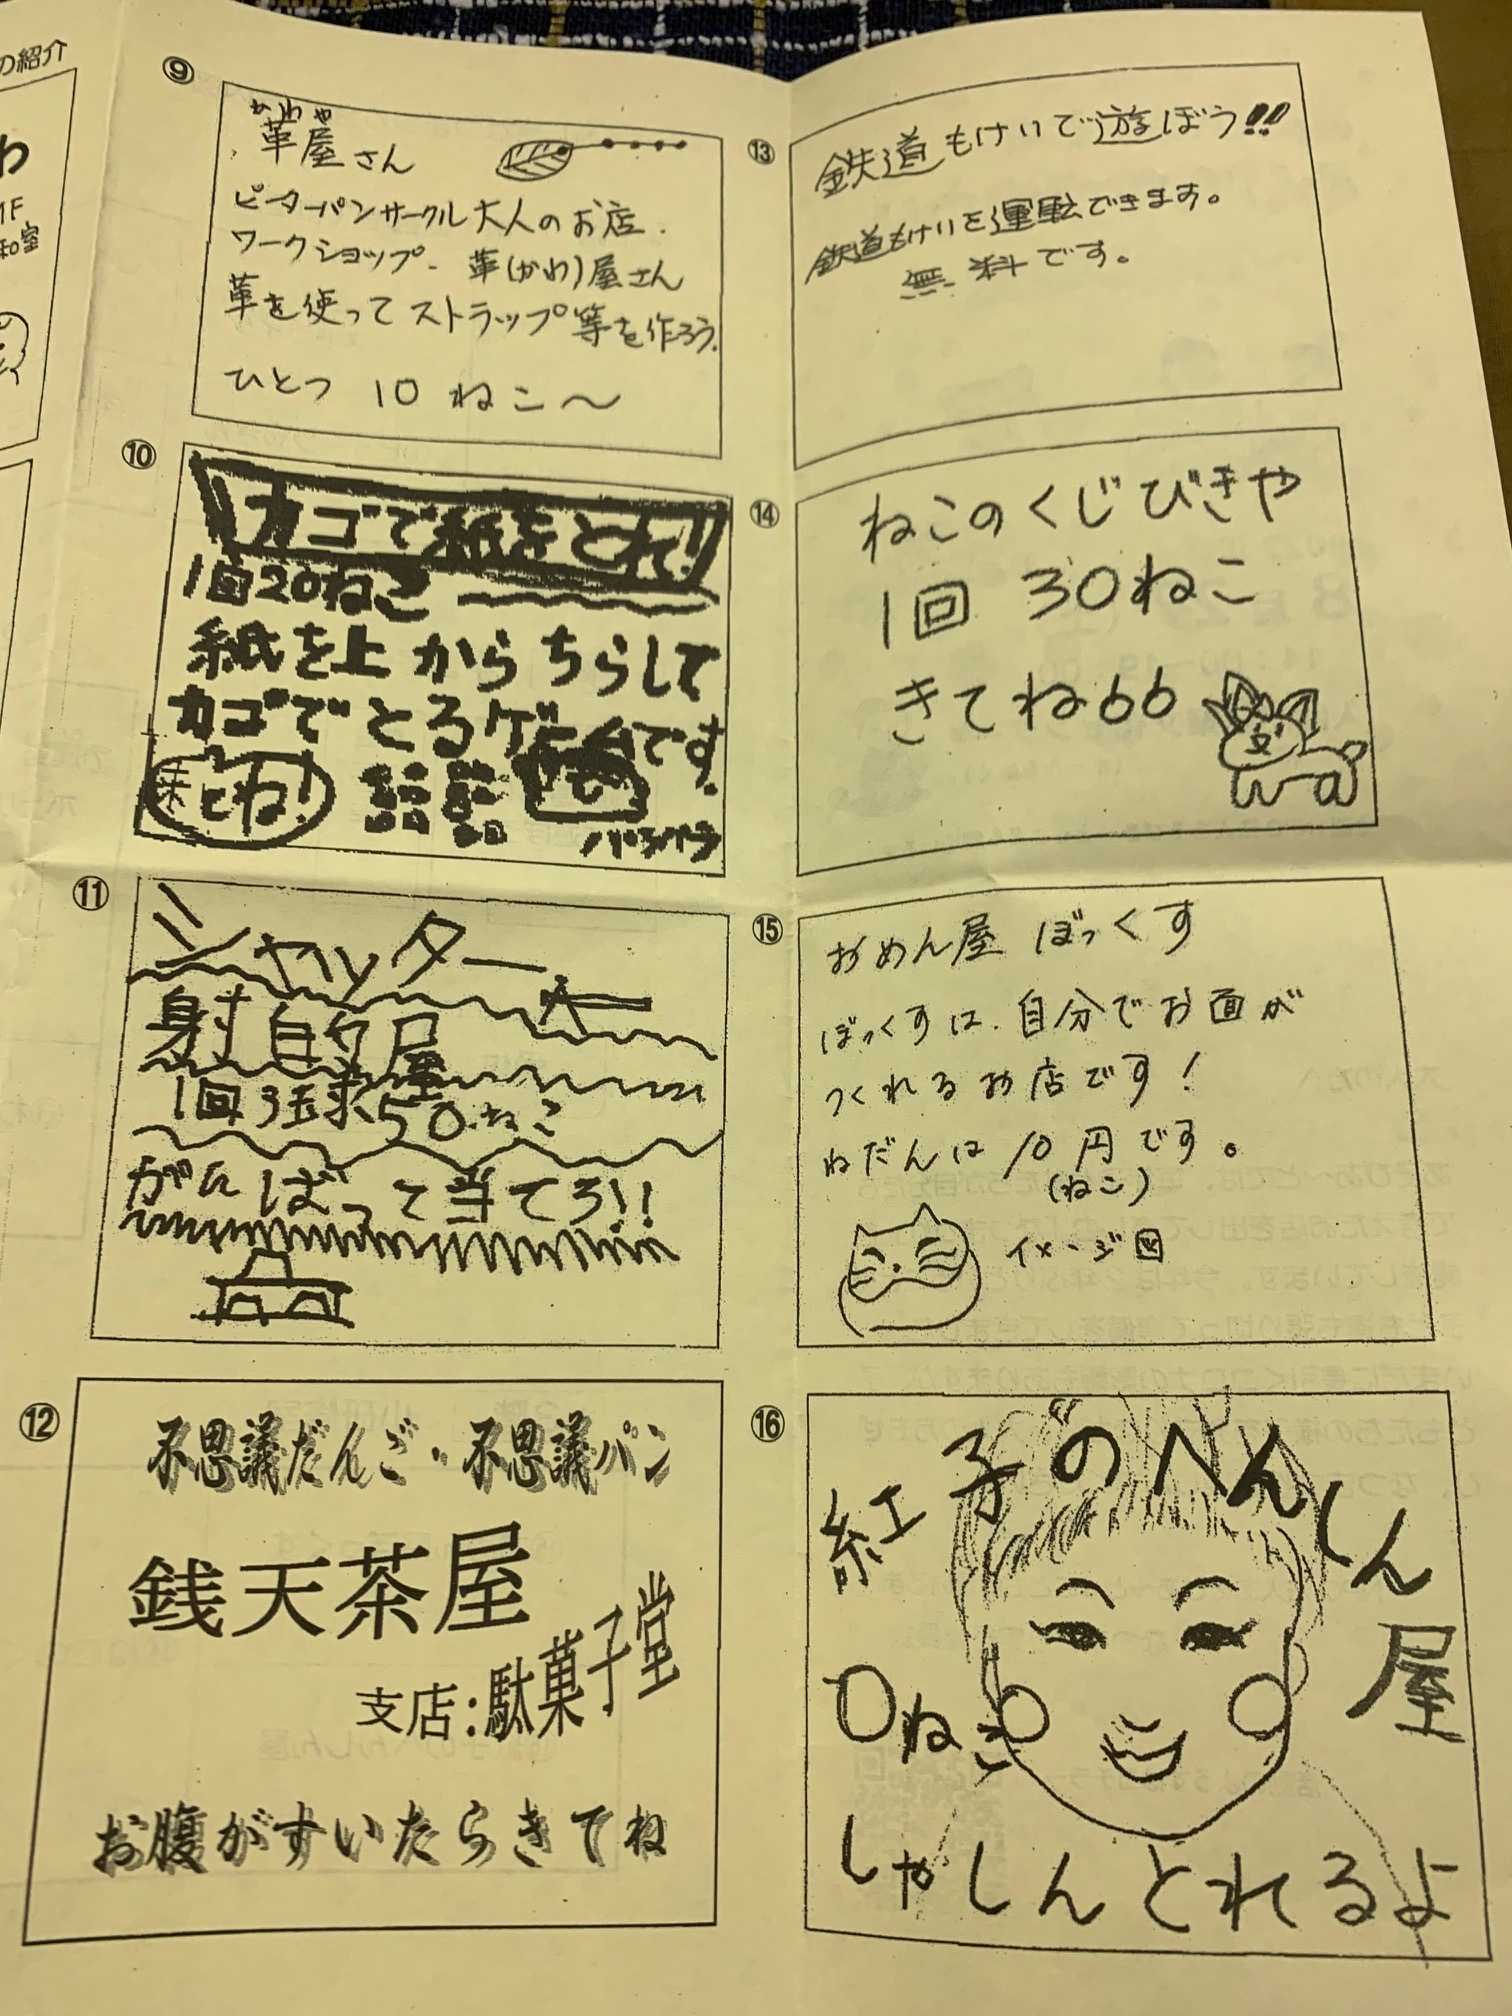 の紹介
わ
1F
和室
⑨
かわや
革屋さん
ピーターパンサークル大人のお店.
ワークショップ. 革(かわ)屋さん
革を使ってストラップ等を作ろう.
ひとつ 10 ねこ〜
⑩
カゴで紙をとれ!
1回20ねこ
紙を上からちらして
カゴでとるゲームです.
来てね!
⑪
シャッター
射的屋
1回3球50ねこ
がんばって当てろ!!
⑫
不思議だんご・不思議パン
銭天茶屋
支店:駄菓子堂
お腹がすいたらきてね
⑬
鉄道もけいで遊ぼう!!
鉄道もけいを運転できます。
無料です。
⑭
ねこのくじびきや
1回 30ねこ
きてね
⑮
おめん屋 ぼっくす
ぼっくすは、自分でお面が
つくれるお店です!
ねだんは10円です。
(ねこ)
イメージ図
⑯
紅子のへんしん屋
0ねこ
しゃしんとれるよ